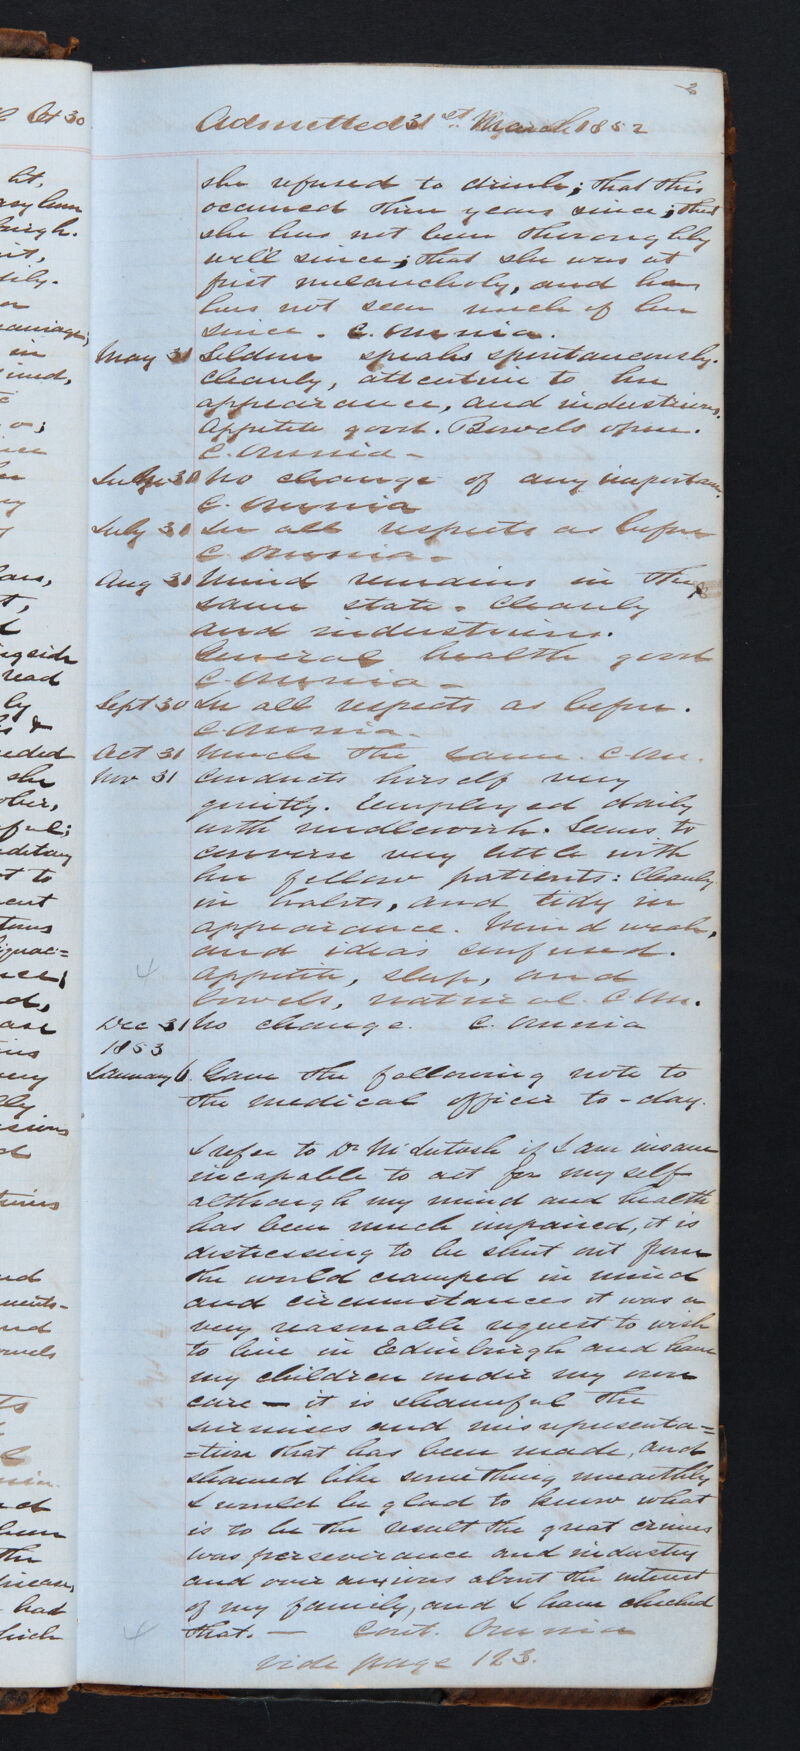 Oct 30
Admitted 31st March 1852
she refused to drink; that this
occurred three years since; that
she has not been thoroughly
well since; that she was at
first melancholy, and he
has not seen much of her
since. C. Omnia.
May 31 Seldom speaks spontaneously.
Cleanly, attentive to her
appearance, and industrious.
Appetite good. Bowels open.
C. Omnia -
30 No change of any importance.
C. Omnia
July 31 In all respects as before
C. Omnia -
Aug 31 Mind remains in the
same state. Cleanly
and industrious.
General health good
C. Omnia -
Sept 30 In all respects as before.
C. Omnia.
Oct 31 Much the same. C. Om.
Nov 31 Conducts herself very
quietly. Employed daily
with needlework. Seems to
converse very little with
her fellow patients: Cleanly
in habits, and tidy in
appearance. Mind weak,
and ideas confused.
Appetite, sleep, and
bowels, natural. C. Om.
Dec 31 No change. C. Omnia
1853
January 6. Gave the following note to
the medical officer to-day.
I refer to Dr McIntosh if I am insane
incapable to act for myself
although my mind and health
has been much impaired, it is
distressing to be shut out from
the world cramped in mind
and circumstances it was a
very reasonable request to wish
to live in Edinburgh and have
my children under my own
care - it is shameful the
surmises and misrepresenta=
=tion that has been made, and
shamed like something unearthly
I would be glad to know what
is to be the result the great crimes
was perseverance and industry
and over anxious about the interest
of my family, and I have checked
that. - Cont. Omnia
vide page 123.